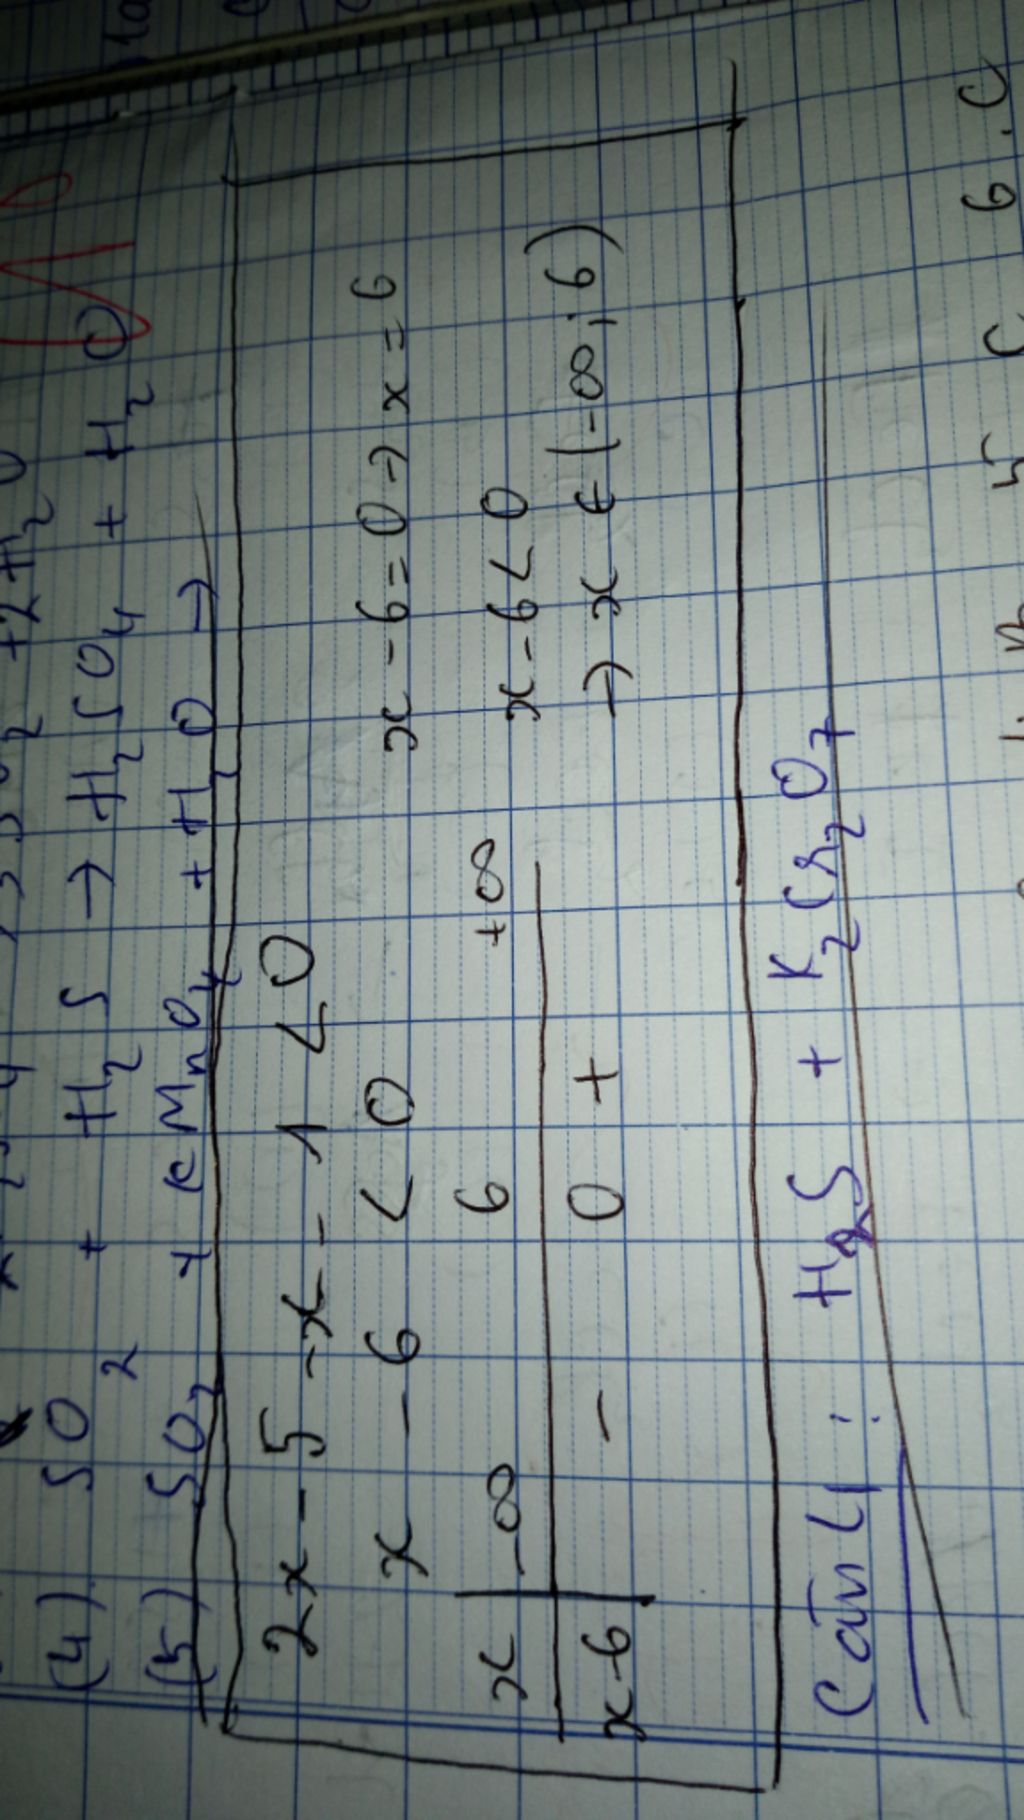 +2H₂O
(4) SO₂ + H₂S → H₂SO₄ + H₂O
(5) SO₂ + KMnO₄ + H₂O →
2x - 5 - x - 1 < 0
x - 6 < 0
x - 6 = 0 → x = 6
x -∞ 6 +∞
x - 6 < 0
x-6 - 0 +
→ x ∈ (-∞; 6)
Câu 4 : H₂S + K₂Cr₂O₇
5 C 6 . C